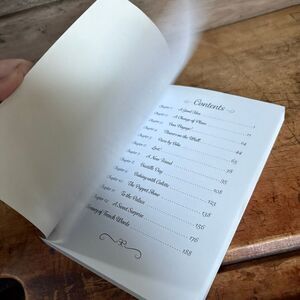 Contents
Chapter 1 A Good Idea 1
Chapter 2 A Change of Plans 11
Chapter Bon Voyage! 24
Chapter on the Wall 44
Chapter Paris by Bike 63
Chapter Lost! 78
Chapter A New Friend 85
Chapter Bastille Day 98
Chapter Baking with Colette 115
Chapter 10 The Puppet Show 123
Chapter 11 To the Palace 138
Chapter 12 A Sweet Surprise 156
Glossary of French Words 176
188